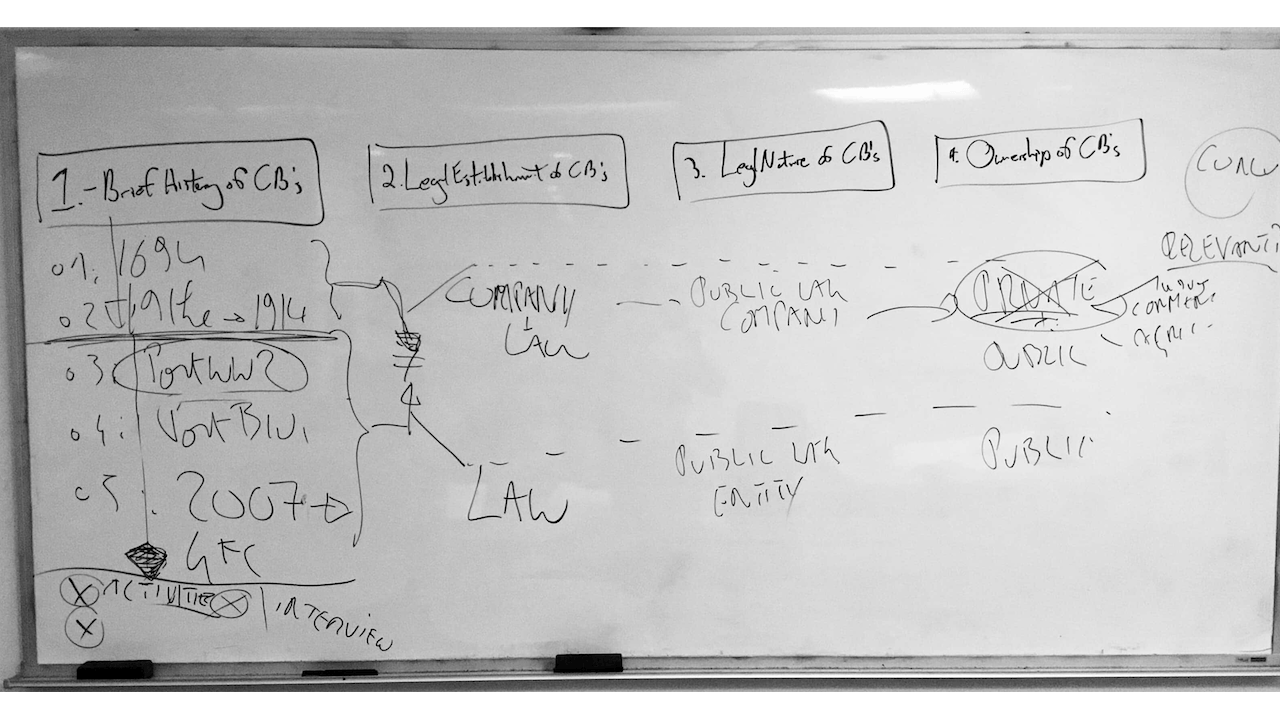 1.- Brief History of CB's
01: 1694
02 19the → 1914
03: Post WW2
04: Post B.W.
05: 2007 →
GFC
X ACTIVITIES X | INTERVIEW
X
2. Legal Establishment of CB's
COMPANY
LAW
LAW
3. Legal Nature of CB's
PUBLIC LAW
COMPANY
PUBLIC LAW
ENTITY
4. Ownership of CB's
PRIVATE
PUBLIC
PUBLIC
RELEVANT?